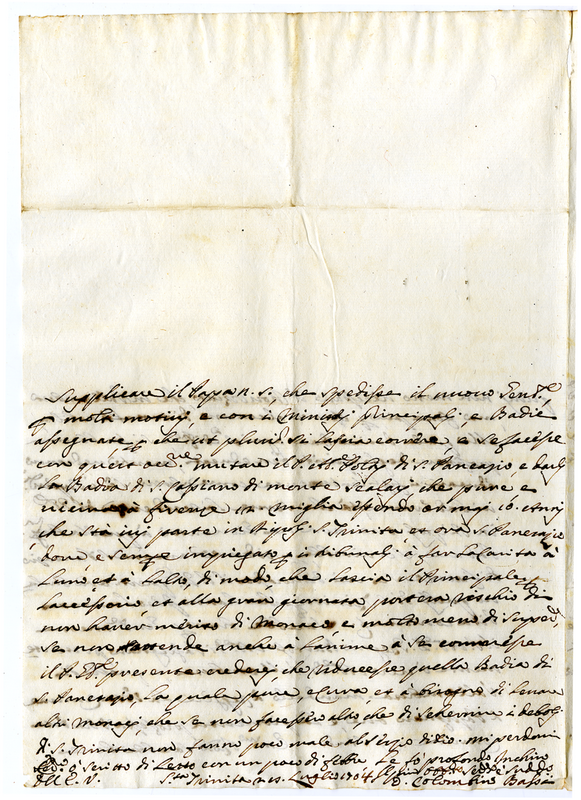 Supplicare il Papa n. s. che spedisse il nuovo
molti motivi, e con i Ministri principali, e Badie
assegnate che ut pluri. si lascia correre e se facesse
con quest mutare il P. di S. Pancrazio e dar
la Badia di S. Cassiano di monte Scalari, che pure e
vicina à firenze miglia essendo ormai 10. anni
che stà iui parte in S. Trinita et ora S. Pancrazio
doue e sempre inpiegato i tribunali à far la Carità à
L'uno et à l'altro, di modo che lascia il Principale
L'accessorio et alla gran giornata porterà rischio di
non hauer merito di Monaco e molto meno di Super.
se non attende anche à l'anime à se commesse
il P. presente crederei che riducesse quella Badia di
S. Pancrazio, la quale pure e Cura, et à bisogno di leuare
altri Monaci, che se non facessero altro che di scheruire i deboli
di S. Trinita non fanno poco male al seruizio di Dio. mi perdoni
ò scritto di Letto con un poco di febbre Le fo profondo Inchino
dell E. V. S.ta Trinita 25. Luglio 1704
D. Colombino Bassi